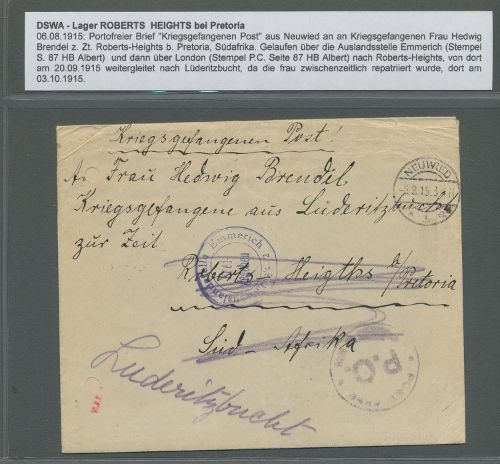 DSWA - Lager ROBERTS HEIGHTS bei Pretoria
06.08.1915: Portofreier Brief "Kriegsgefangenen Post" aus Neuwied an an Kriegsgefangenen Frau Hedwig
Brendel z. Zt. Roberts-Heights b. Pretoria, Südafrika. Gelaufen über die Auslandsstelle Emmerich (Stempel
S. 87 HB Albert) und dann über London (Stempel P.C. Seite 87 HB Albert) nach Roberts-Heights, von dort
am 20.09.1915 weitergleitet nach Lüderitzbucht, da die frau zwischenzeitlich repatriiert wurde, dort am
03.10.1915.
Kriegsgefangenen Post!
NEUWIED
An Frau Hedwig Brendel,
Kriegsgefangene aus Lüderitzbucht
zur Zeit
Emmerich
Roberts - Heigths b/Pretoria
Süd-Afrika
P.C.
Luderitzbucht